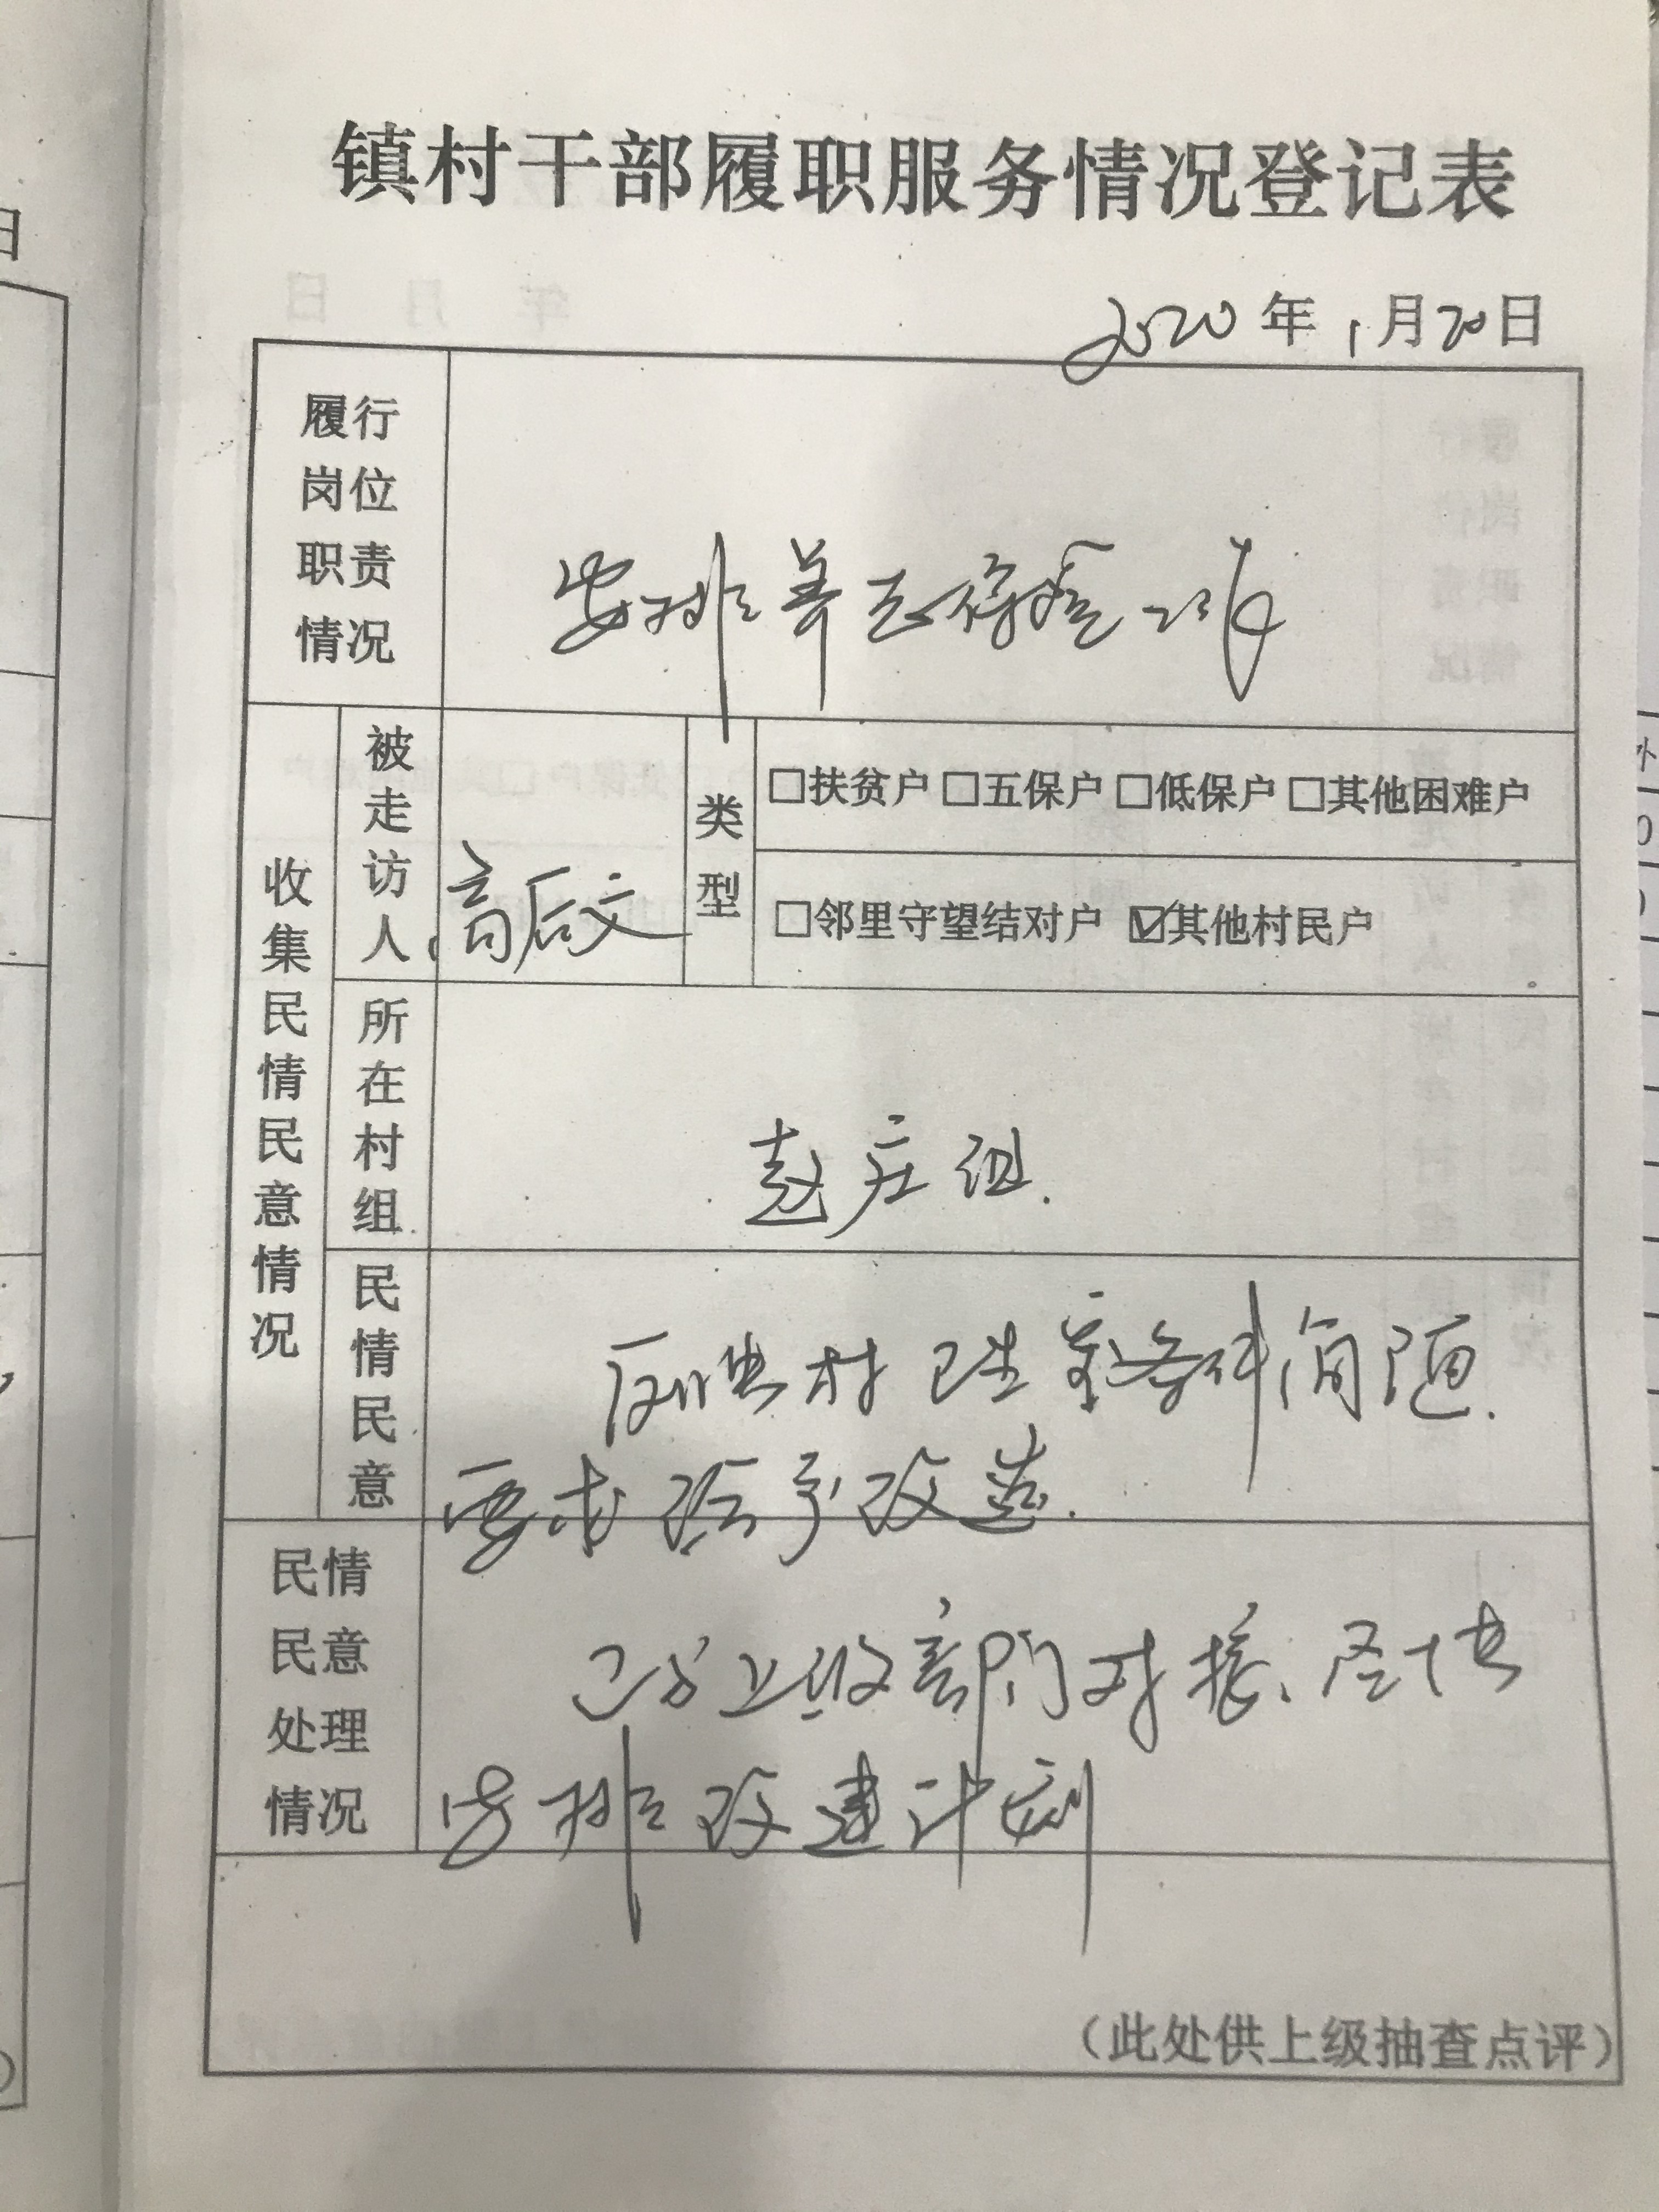 镇村干部履职服务情况登记表
2020年1月20日
履行岗位职责情况
安排养老保险工作
收集民情民意情况
被走访人
高后文
类型
□扶贫户 □五保户 □低保户 □其他困难户
□邻里守望结对户 ☑其他村民户
所在村组
赵庄组.
民情民意
反映村卫生室条件简陋.
要求给予改造.
民情民意处理情况
已与上级部门对接、尽快
安排改建计划
（此处供上级抽查点评）
日